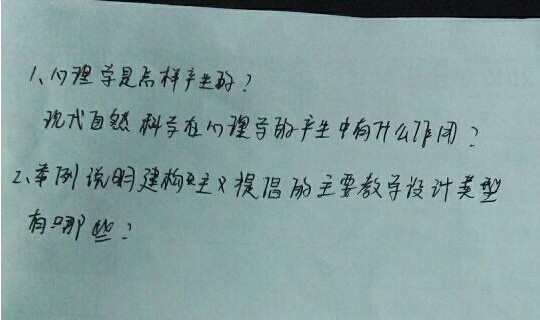 1、心理学是怎样产生的？
现代自然科学在心理学的产生中有什么作用？
2、举例说明建构主义提倡的主要教学设计类型
有哪些？